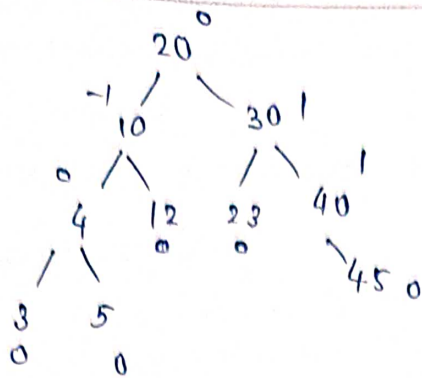 0
20
-1 10 30 1
0 1
4 12 23 40
0 0
45 0
3 5
0 0